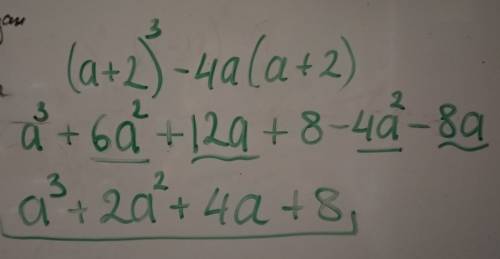 (a+2)³-4a(a+2)
a³+6a²+12a+8-4a²-8a
a³+2a²+4a+8